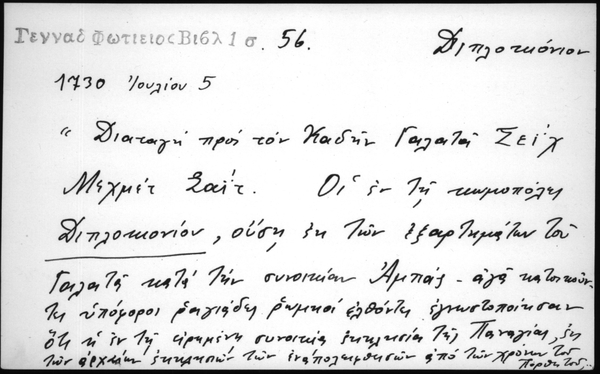 Γενναδ Φωτιειος Βιβλ 1 σ. 56. Διπλοκιόνιον
1730 Ἰουλίου 5
"Διαταγή πρός τόν Καδῆν Γαλατᾶ Σεΐχ
Μεχμέτ Σαΐτ. Οἱ ἐν τῇ κωμοπόλει
Διπλοκιονίου, οὔσῃ ἐκ τῶν ἐξαρτημάτων τοῦ
Γαλατᾶ κατά τήν συνοικίαν Ἀμπάς-αγᾶ κατοικοῦν-
τες ὑπόφοροι ραγιάδες ρωμιοί ἐλθόντες ἐγνωστοποίησαν
ὅτι ἡ ἐν τῇ εἰρημένῃ συνοικίᾳ ἐκκλησία τῆς Παναγίας, ἐκ
τῶν ἀρχαίων ἐκκλησιῶν τῶν ἐναπολειφθησῶν ἀπό τῶν χρόνων τοῦ
Πορθητοῦ..